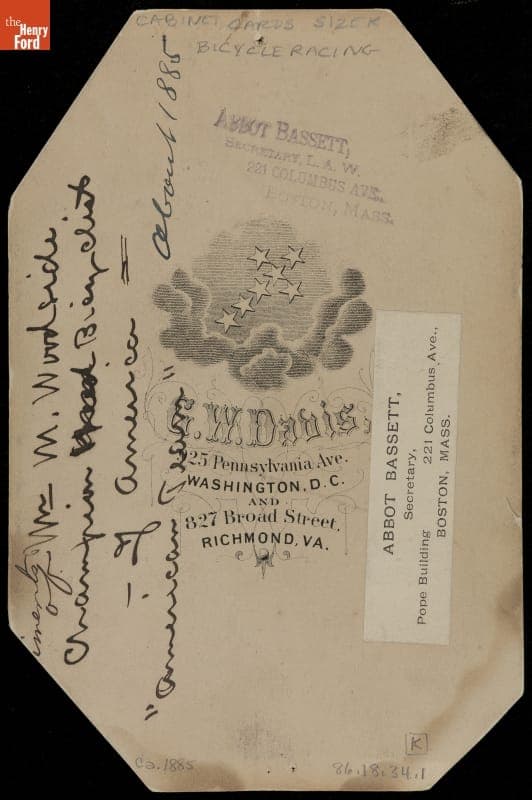 the
Henry
Ford
CABINET CARDS SIZE K
BICYCLE RACING
ABBOT BASSETT,
SECRETARY, L. A. W.
221 COLUMBUS AVE.,
BOSTON, MASS.
G.W. Davis,
25 Pennsylvania Ave.
WASHINGTON, D.C.
AND
827 Broad Street.
RICHMOND, VA.
ABBOT BASSETT,
Secretary,
Pope Building 221 Columbus Ave.,
BOSTON, MASS.
of Wm M. Woodside
Champion Bicyclists
- of America =
"American Team"
about 1885
Ca. 1885
K
86.18.34.1